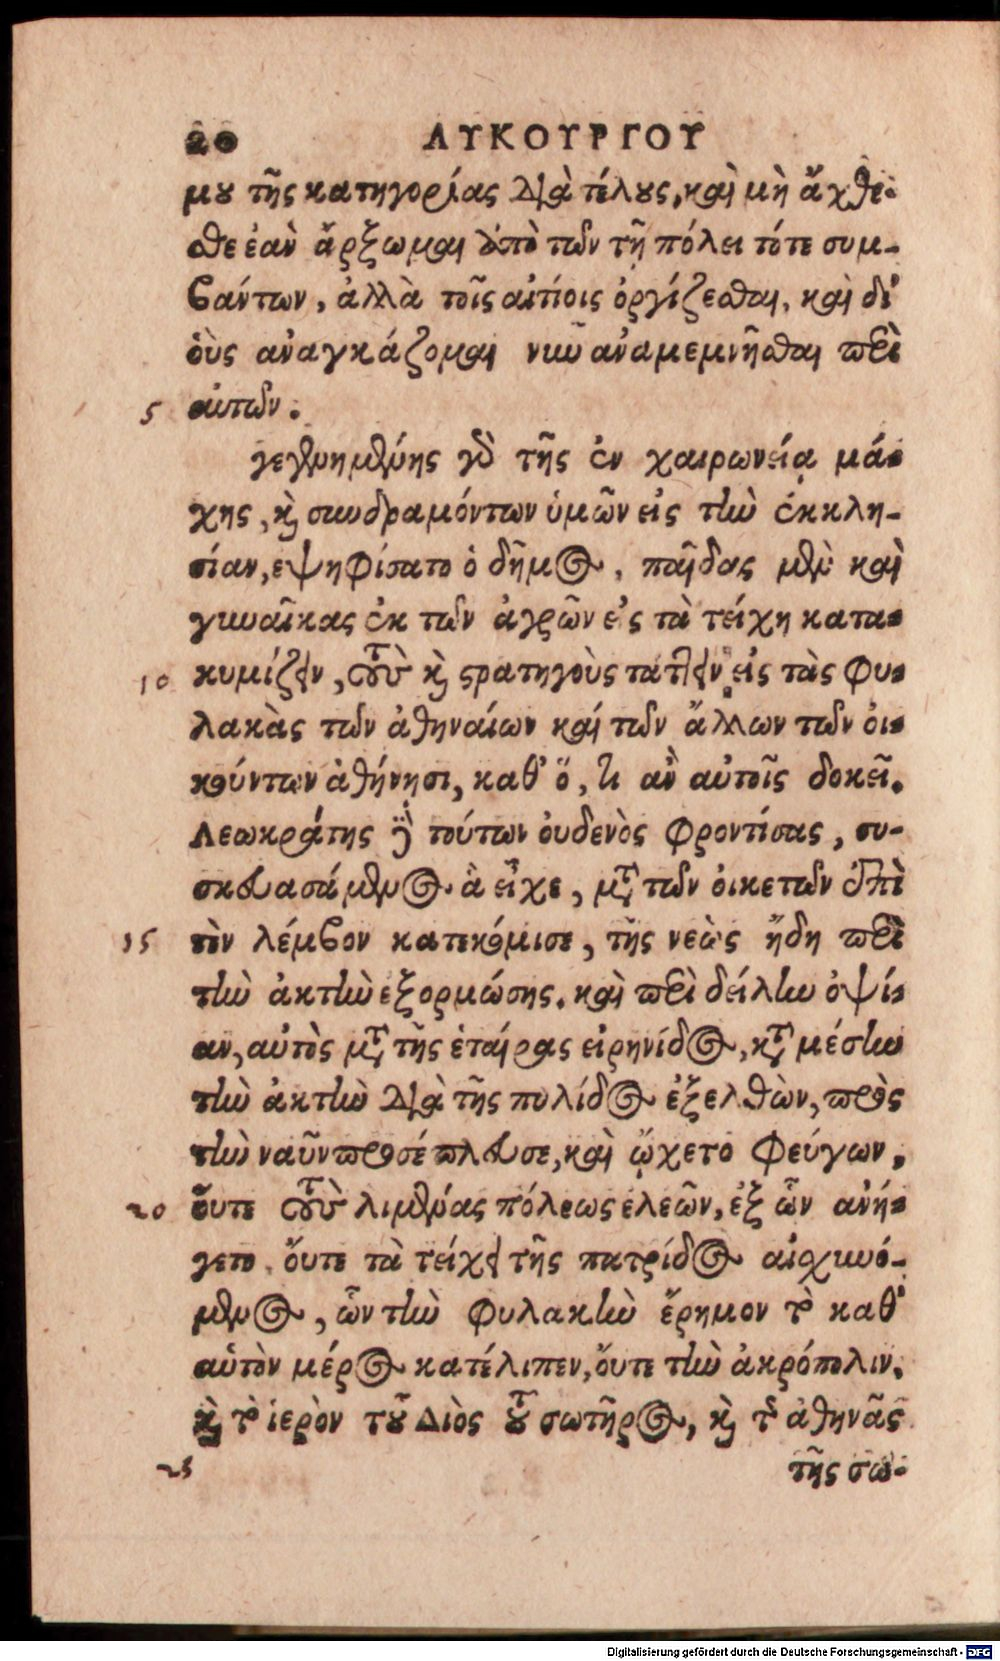 20 ΛΥΚΟΥΡΓΟΥ
μου τῆς κατηγορίας διὰ τέλους, καὶ μὴ ἄχθε-
σθε ἐὰν ἄρξωμαι ἀπὸ τῶν τῇ πόλει τότε συμ-
βάντων, ἀλλὰ τοῖς αἰτίοις ὀργίζεσθαι, καὶ δι'
ὁὺς ἀναγκάζομαι νῦν ἀναμεμνῆσθαι περὶ
5 αὐτῶν.
γεγενημένης γὰρ τῆς ἐν χαιρωνείᾳ μά-
χης, καὶ συνδραμόντων ὑμῶν εἰς τὴν ἐκκλη-
σίαν, εψηφίσατο ὁ δῆμος, παῖδας μὲν καὶ
γυναῖκας ἐκ τῶν ἀγρῶν εἰς τὰ τείχη κατα-
10 κυμίζειν, τοὺς καὶ στρατηγοὺς τάττειν εἰς τὰς φυ-
λακὰς τῶν ἀθηναίων καὶ τῶν ἄλλων τῶν οἰ-
κούντων ἀθήνησι, καθ' ὅ, τι ἂν αὐτοῖς δοκεῖ.
Λεωκράτης δὲ τούτων ὀυδενὸς φροντίσας, συ-
σκευασάμενος ἃ εἶχε, μετὰ τῶν ὀικετῶν ἐπὶ
15 τὸν λέμβον κατεκόμισε, τῆς νεὼς ἤδη περὶ
τὴν ἀκτὴν εξορμώσης. καὶ περὶ δείλην ὀψί-
αν, αὐτὸς μετὰ τῆς ἑταίρας εἰρηνίδος, κατὰ μέσην
τὴν ἀκτὴν διὰ τῆς πυλίδος ἐξελθὼν, πρὸς
τὴν ναῦν προσέπλευσε, καὶ ᾤχετο φεύγων,
20 ὄυτε τοὺς λιμένας πόλεως ελεῶν, ἐξ ὧν ἀνή-
γετο, ὄυτε τὰ τείχει τῆς πατρίδος αἰσχυνό-
μενος, ὧν τὴν φυλακὴν ἔρημον τὸ καθ'
αὑτὸν μέρος κατέλιπεν, ὄυτε τὴν ἀκρόπολιν,
καὶ τὸ ἱερὸν τοῦ Διὸς τοῦ σωτῆρος, καὶ τῆς ἀθηνᾶς
25 τῆς σω-
Digitalisierung gefördert durch die Deutsche Forschungsgemeinschaft - DFG